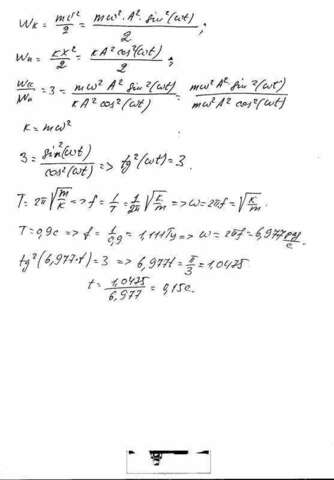 Wк = mv²/2 = mω²·A²·sin²(ωt)/2 ;
Wп = кx²/2 = кA²cos²(ωt)/2 ;
Wк/Wп = 3 = mω²A² sin²(ωt)/кA² cos²(ωt) = mω²A² sin²(ωt)/mω²A² cos²(ωt)
к = mω²
3 = sin²(ωt)/cos²(ωt) => tg²(ωt) = 3.
T = 2π√(m/к) => f = 1/T = 1/2π √(к/m) => ω = 2πf = √(к/m).
T = 0,9c => f = 1/0,9 = 1,111 Гц => ω = 2πf = 6,977 рад/с.
tg²(6,977·t) = 3 => 6,977t = π/3 = 1,0475
t = 1,0475/6,977 = 0,15c.